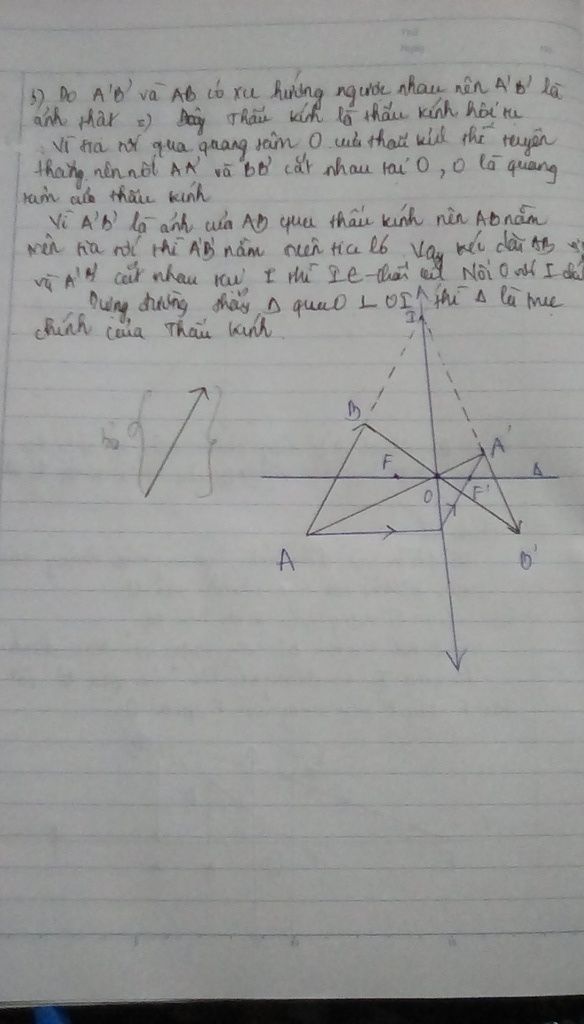 b) Do A'B' và AB có xu hướng ngược nhau nên A'B' là
ảnh thật => Đây Thấu kính là thấu kính hội tụ
Vì tia tới qua quang tâm O của thấu kính thì truyền
thẳng nên nối AA' và BB' cắt nhau tại O, O là quang
tâm của thấu kính
Vì A'B' là ảnh của AB qua thấu kính nên AB nằm
trên tia tới thì A'B' nằm trên tia ló. Vậy kéo dài AB
và A'B' cắt nhau tại I thì I ∈ thấu kính. Nối O với I
Dựng đường thẳng Δ qua O ⊥ OI thì Δ là trục
chính của Thấu kính.
I
B
A'
F
Δ
O
F'
A
B'